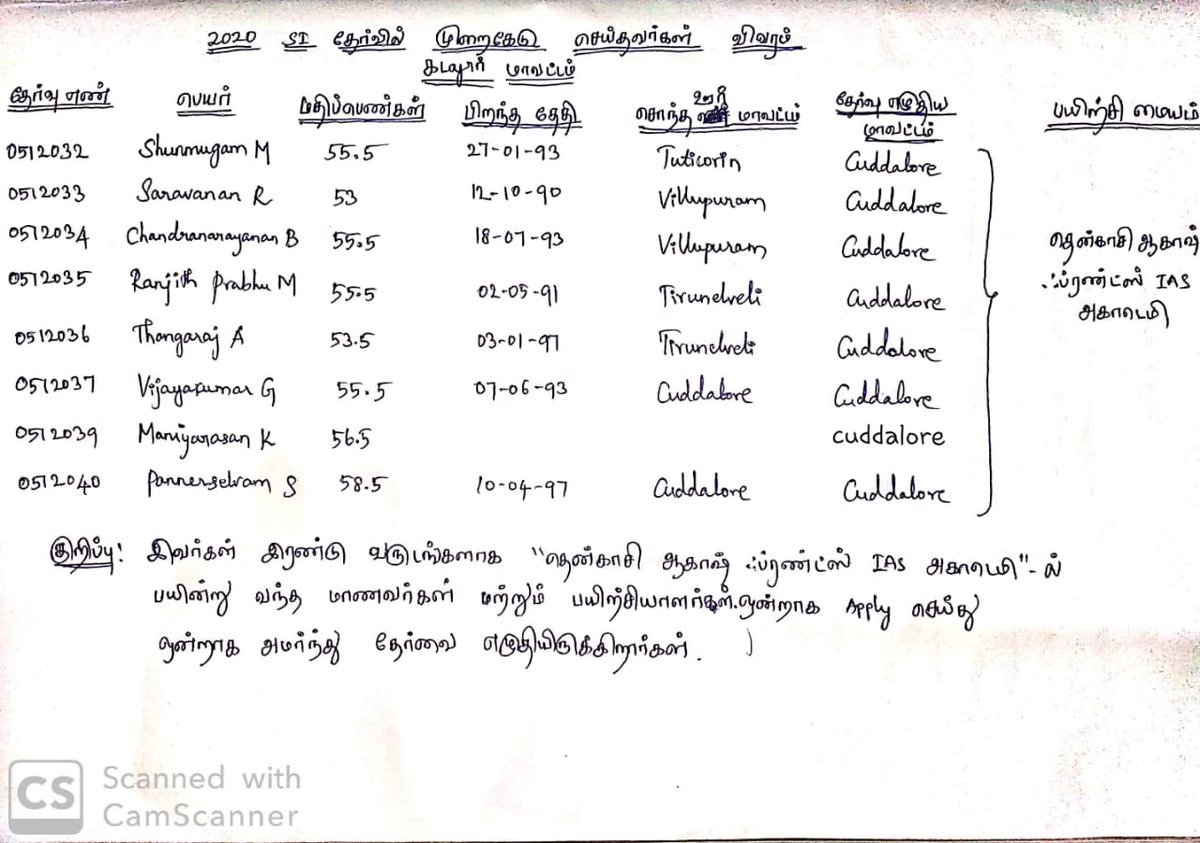 2020 SI தேர்வில் முறைகேடு செய்தவர்கள் விவரம்
கடலூர் மாவட்டம்
தேர்வு எண் பெயர் மதிப்பெண்கள் பிறந்த தேதி சொந்த ஊர் மாவட்டம் தேர்வு எழுதிய மாவட்டம் பயிற்சி மையம்
0512032 Shunmugam M 55.5 27-01-93 Tuticorin Cuddalore
0512033 Saravanan R 53 12-10-90 Villupuram Cuddalore
0512034 Chandranarayanan B 55.5 18-07-93 Villupuram Cuddalore
0512035 Ranjith Prabhu M 55.5 02-05-91 Tirunelveli Cuddalore
0512036 Thangaraj A 53.5 03-01-97 Tirunelveli Cuddalore
0512037 Vijayakumar G 55.5 07-06-93 Cuddalore Cuddalore
0512039 Maniyarasan K 56.5 cuddalore
0512040 Pannerselvam S 58.5 10-04-97 Cuddalore Cuddalore
தென்காசி ஆகாஷ்
ஃப்ரண்ட்ஸ் IAS
அகாடெமி
குறிப்பு: இவர்கள் இரண்டு வருடங்களாக "தென்காசி ஆகாஷ் ஃப்ரண்ட்ஸ் IAS அகாடெமி"-ல்
பயின்று வந்த மாணவர்கள் மற்றும் பயிற்சியாளர்கள். ஒன்றாக Apply செய்து
ஒன்றாக அமர்ந்து தேர்வை எழுதியிருக்கிறார்கள்.
CS Scanned with
CamScanner